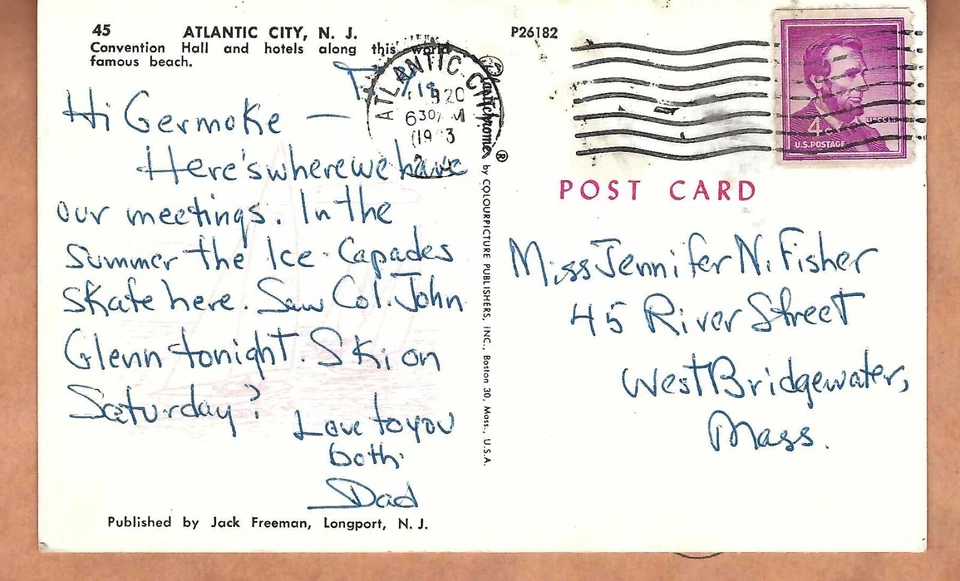 45 ATLANTIC CITY, N. J.
Convention Hall and hotels along this world
famous beach.
P26182
ATLANTIC CI
630
4c
U.S. POSTAGE
Hi Germoke —
Here's where we have
our meetings. In the
summer the Ice-Capades
skate here. Saw Col. John
Glenn tonight. Ski on
Saturday?
Love to you
both.
Dad
Published by Jack Freeman, Longport, N. J.
Plastichrome ® by COLOURPICTURE PUBLISHERS, INC., Boston 30, Mass., U.S.A.
POST CARD
Miss Jennifer N. Fisher
45 River Street
West Bridgewater,
Mass.